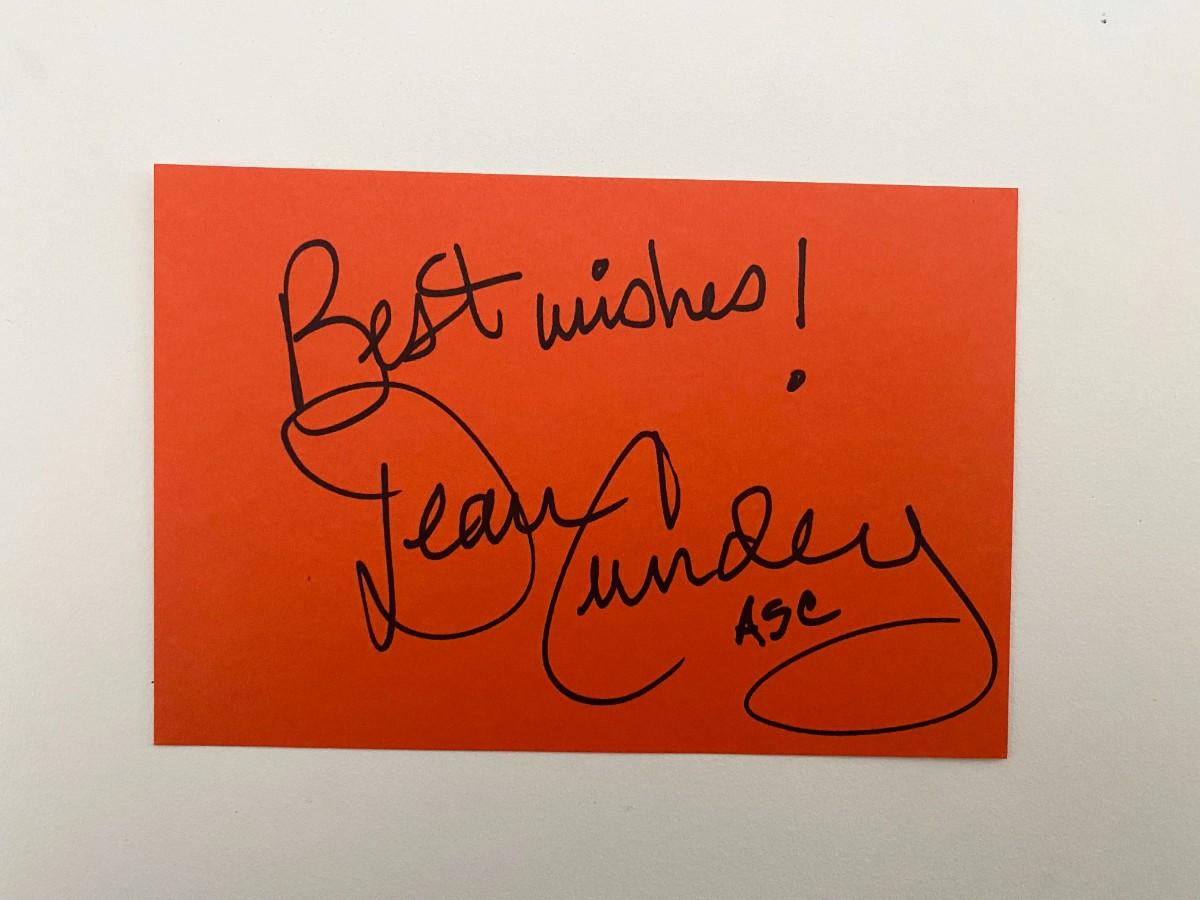 Best wishes!
Dean Cundey
ASC